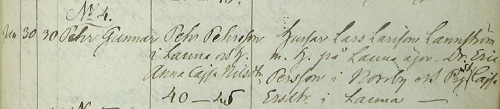 No 4.
Jan 30 30 Pehr Gunnar Pehr Pehrsson Gustaf Lars Larsson Lannström
i Launa och h. m. h. på Launa ägor. Dr. Eric
Anna Cajsa Nilsdtr Persson i Norrby och Pig. Cajsa
40 – 45 Ersdtr i Launa